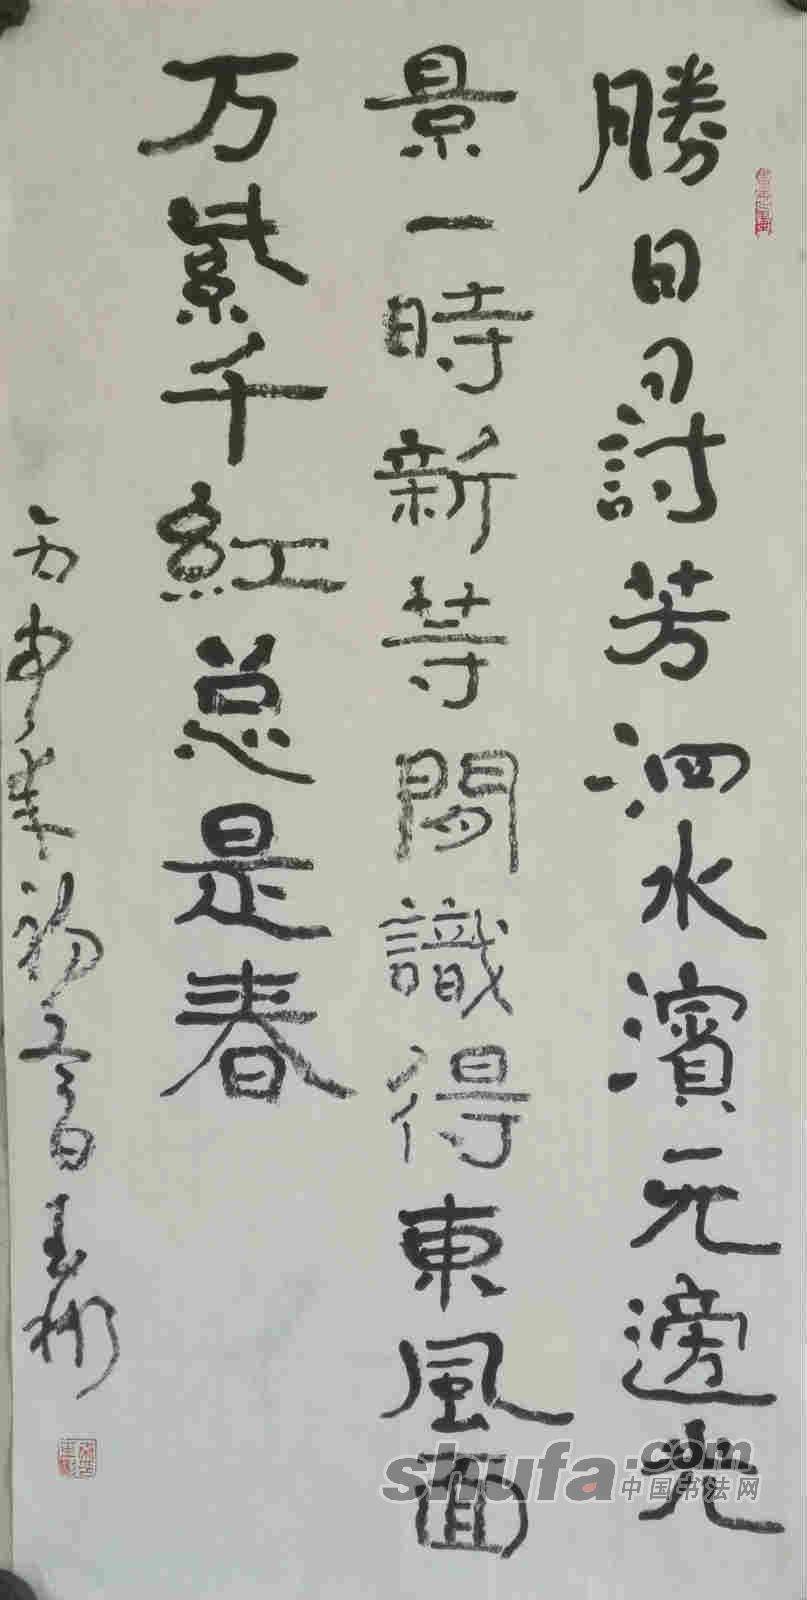 勝日尋芳泗水濱无邊光
景一時新等閒識得東風面
万紫千紅总是春
丙申年初日
shufa.com
中国书法网